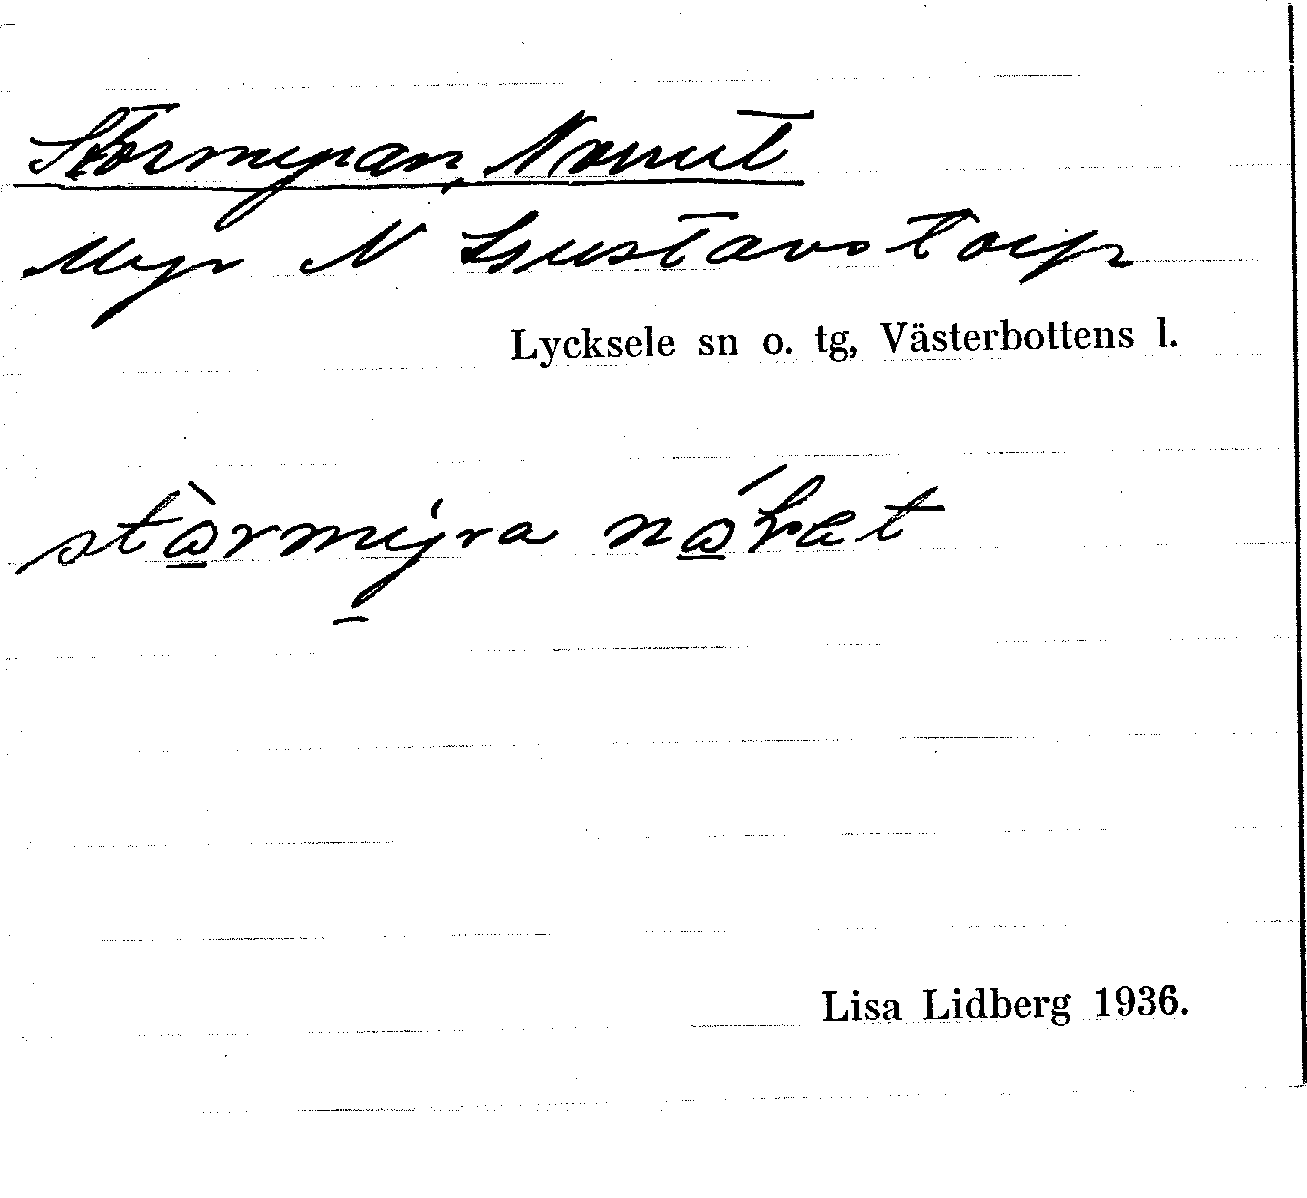 Stormyran, Norrut
Myr N Gustavstorp
Lycksele sn o. tg, Västerbottens l.
stòrmýra
Lisa Lidberg 1936.